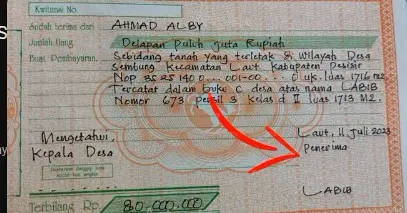 Kwitansi No.
Sudah terima dari AHMAD ALBY
Jumlah Uang Delapan Puluh Juta Rupiah
Buat Pembayaran. Sebidang tanah yang terletak di wilayah Desa
Sembung Kecamatan Laut Kabupaten Desisir
Nop 35 25 140 0... 001-00... 0 uk. luas 1716 m2
Tercatat dalam buku C desa atas nama LABIB
Nomor 673 persil 3 kelas d II luas 1713 M2.
Mengetahui,
Kepala Desa
Laut, 11 Juli 2023
Penerima
LABIB
Terbilang Rp. 80.000.000